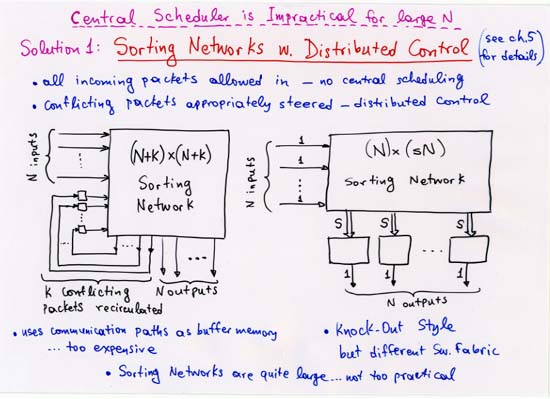 Central Scheduler is Impractical for large N
Solution 1: Sorting Networks w. Distributed Control (see ch.5 for details)
• all incoming packets allowed in – no central scheduling
• conflicting packets appropriately steered – distributed control
N inputs
(N+k)×(N+k)
Sorting
Network
K conflicting
packets recirculated
N outputs
N inputs
1
1
1
(N)×(sN)
Sorting Network
S
S
S
1
1
1
N outputs
• uses communication paths as buffer memory
... too expensive
• Knock-Out Style
but different Sw. Fabric
• Sorting Networks are quite large... not too practical